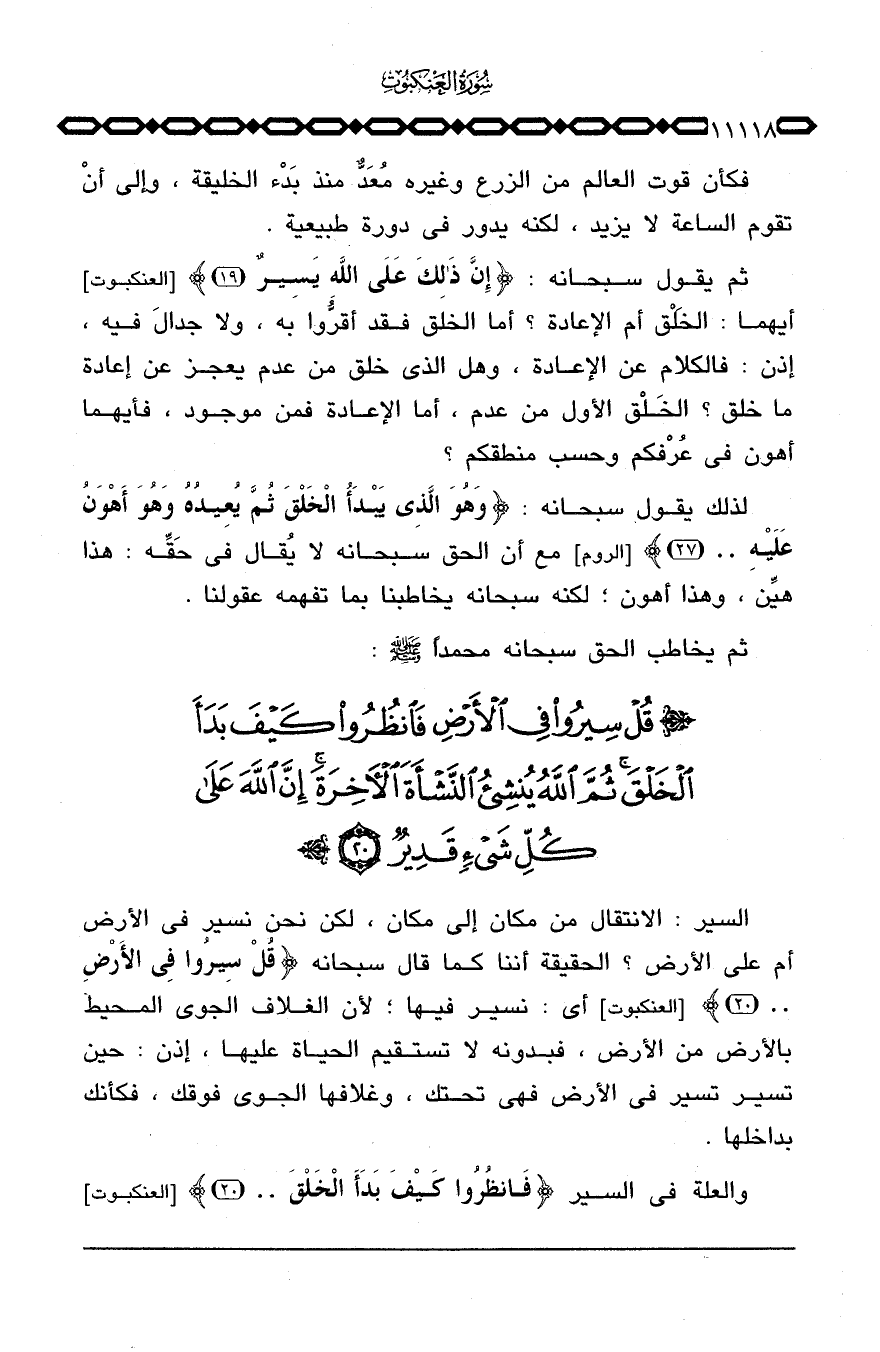 سُورَةُ العَنكَبُوتِ
١١١١٨
فكأن قوت العالم من الزرع وغيره مُعَدٌّ منذ بَدْء الخليقة ، وإلى أنْ
تقوم الساعة لا يزيد ، لكنه يدور فى دورة طبيعية .
ثم يقول سبحانه : ﴿ إِنَّ ذَٰلِكَ عَلَى اللَّهِ يَسِيرٌ (١٩) ﴾ [العنكبوت]
أيهما : الخَلْق أم الإعادة ؟ أما الخلق فقد أقرُّوا به ، ولا جدالَ فيه ،
إذن : فالكلام عن الإعادة ، وهل الذى خلق من عدم يعجز عن إعادة
ما خلق ؟ الخَلْق الأول من عدم ، أما الإعادة فمن موجود ، فأيهما
أهون فى عُرْفكم وحسب منطقكم ؟
لذلك يقول سبحانه : ﴿ وَهُوَ الَّذِى يَبْدَأُ الْخَلْقَ ثُمَّ يُعِيدُهُ وَهُوَ أَهْوَنُ
عَلَيْهِ .. (٢٧) ﴾ [الروم] مع أن الحق سبحانه لا يُقال فى حَقِّه : هذا
هيِّن ، وهذا أهون ؛ لكنه سبحانه يخاطبنا بما تفهمه عقولنا .
ثم يخاطب الحق سبحانه محمداً ﷺ :
﴿ قُلْ سِيرُوا۟ فِى ٱلْأَرْضِ فَٱنظُرُوا۟ كَيْفَ بَدَأَ
ٱلْخَلْقَ ۚ ثُمَّ ٱللَّهُ يُنشِئُ ٱلنَّشْأَةَ ٱلْآخِرَةَ ۚ إِنَّ ٱللَّهَ عَلَىٰ
كُلِّ شَىْءٍ قَدِيرٌ ٢٠ ﴾
السير : الانتقال من مكان إلى مكان ، لكن نحن نسير فى الأرض
أم على الأرض ؟ الحقيقة أننا كما قال سبحانه ﴿ قُلْ سِيرُوا فِى الأَرْضِ
.. (٢٠) ﴾ [العنكبوت] أى : نسير فيها ؛ لأن الغلاف الجوى المحيط
بالأرض من الأرض ، فبدونه لا تستقيم الحياة عليها ، إذن : حين
تسير تسير فى الأرض فهى تحتك ، وغلافها الجوى فوقك ، فكأنك
بداخلها .
والعلة فى السير ﴿ فَانظُرُوا كَيْفَ بَدَأَ الْخَلْقَ .. (٢٠) ﴾ [العنكبوت]